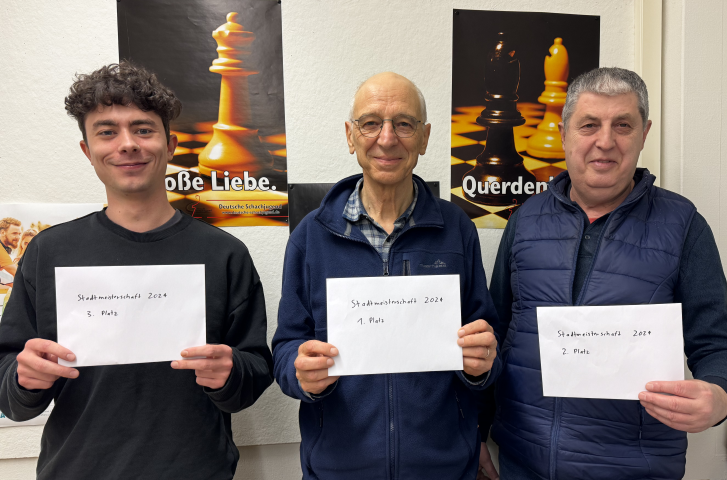 oße Liebe.
Deutsche Schachjugend
Querden
Stadtmeisterschaft 2024
3. Platz
Stadtmeisterschaft 2024
1. Platz
Stadtmeisterschaft 2024
2. Platz